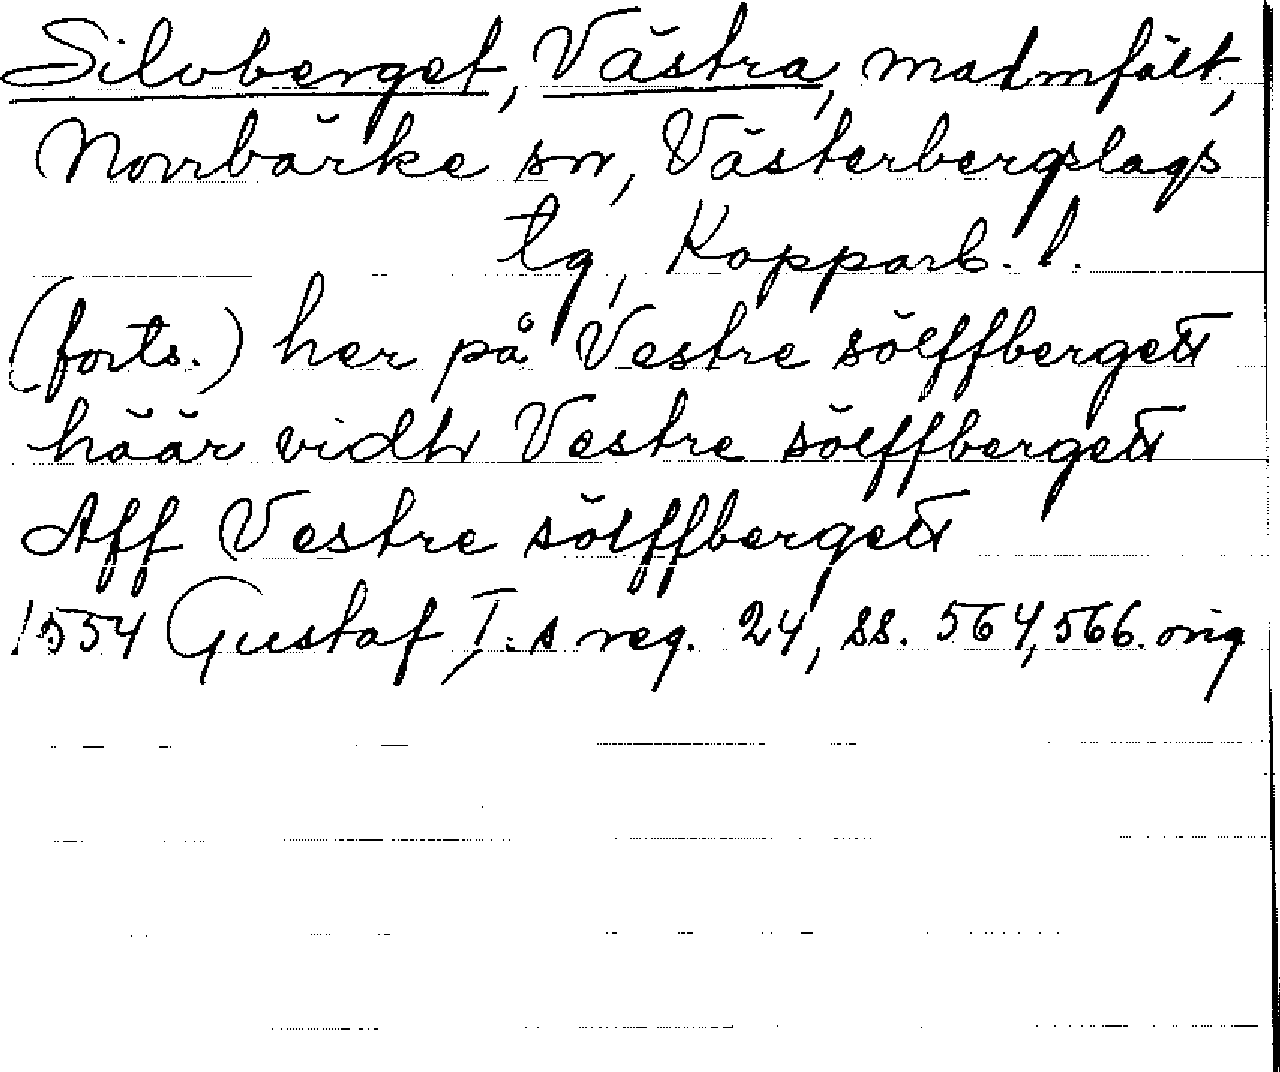 Silvberget, Västra, malmfält,
Norrbärke sn, Västerbergslags
tg, Kopparb. l.
(forts.) her på Vestre sölffbergett
häär vidh Vestre sölffbergett
Aff Vestre sölffbergett
1554 Gustaf I:s reg. 24, ss. 564, 566. orig